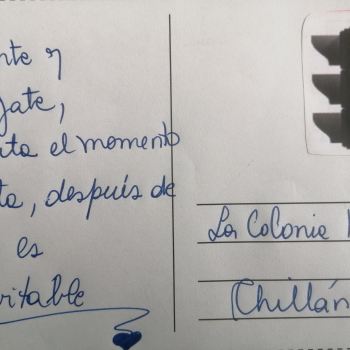 nte y
jate,
uta el momento
ta, después de
es
vitable
La Colonia
Chillán